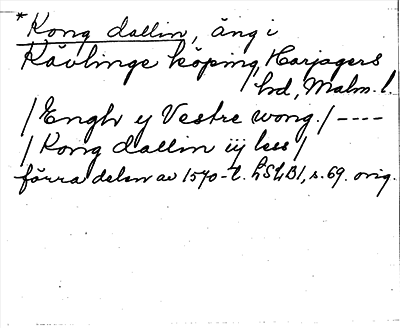 *Kong dallin, äng i
Kävlinge köping, Harjagers
hd, Malm. l.
/Engh y Vestre wong./ ----
/Kong dallin iij less/
förra delen av 1570-t. LSLB1, s. 69. orig.